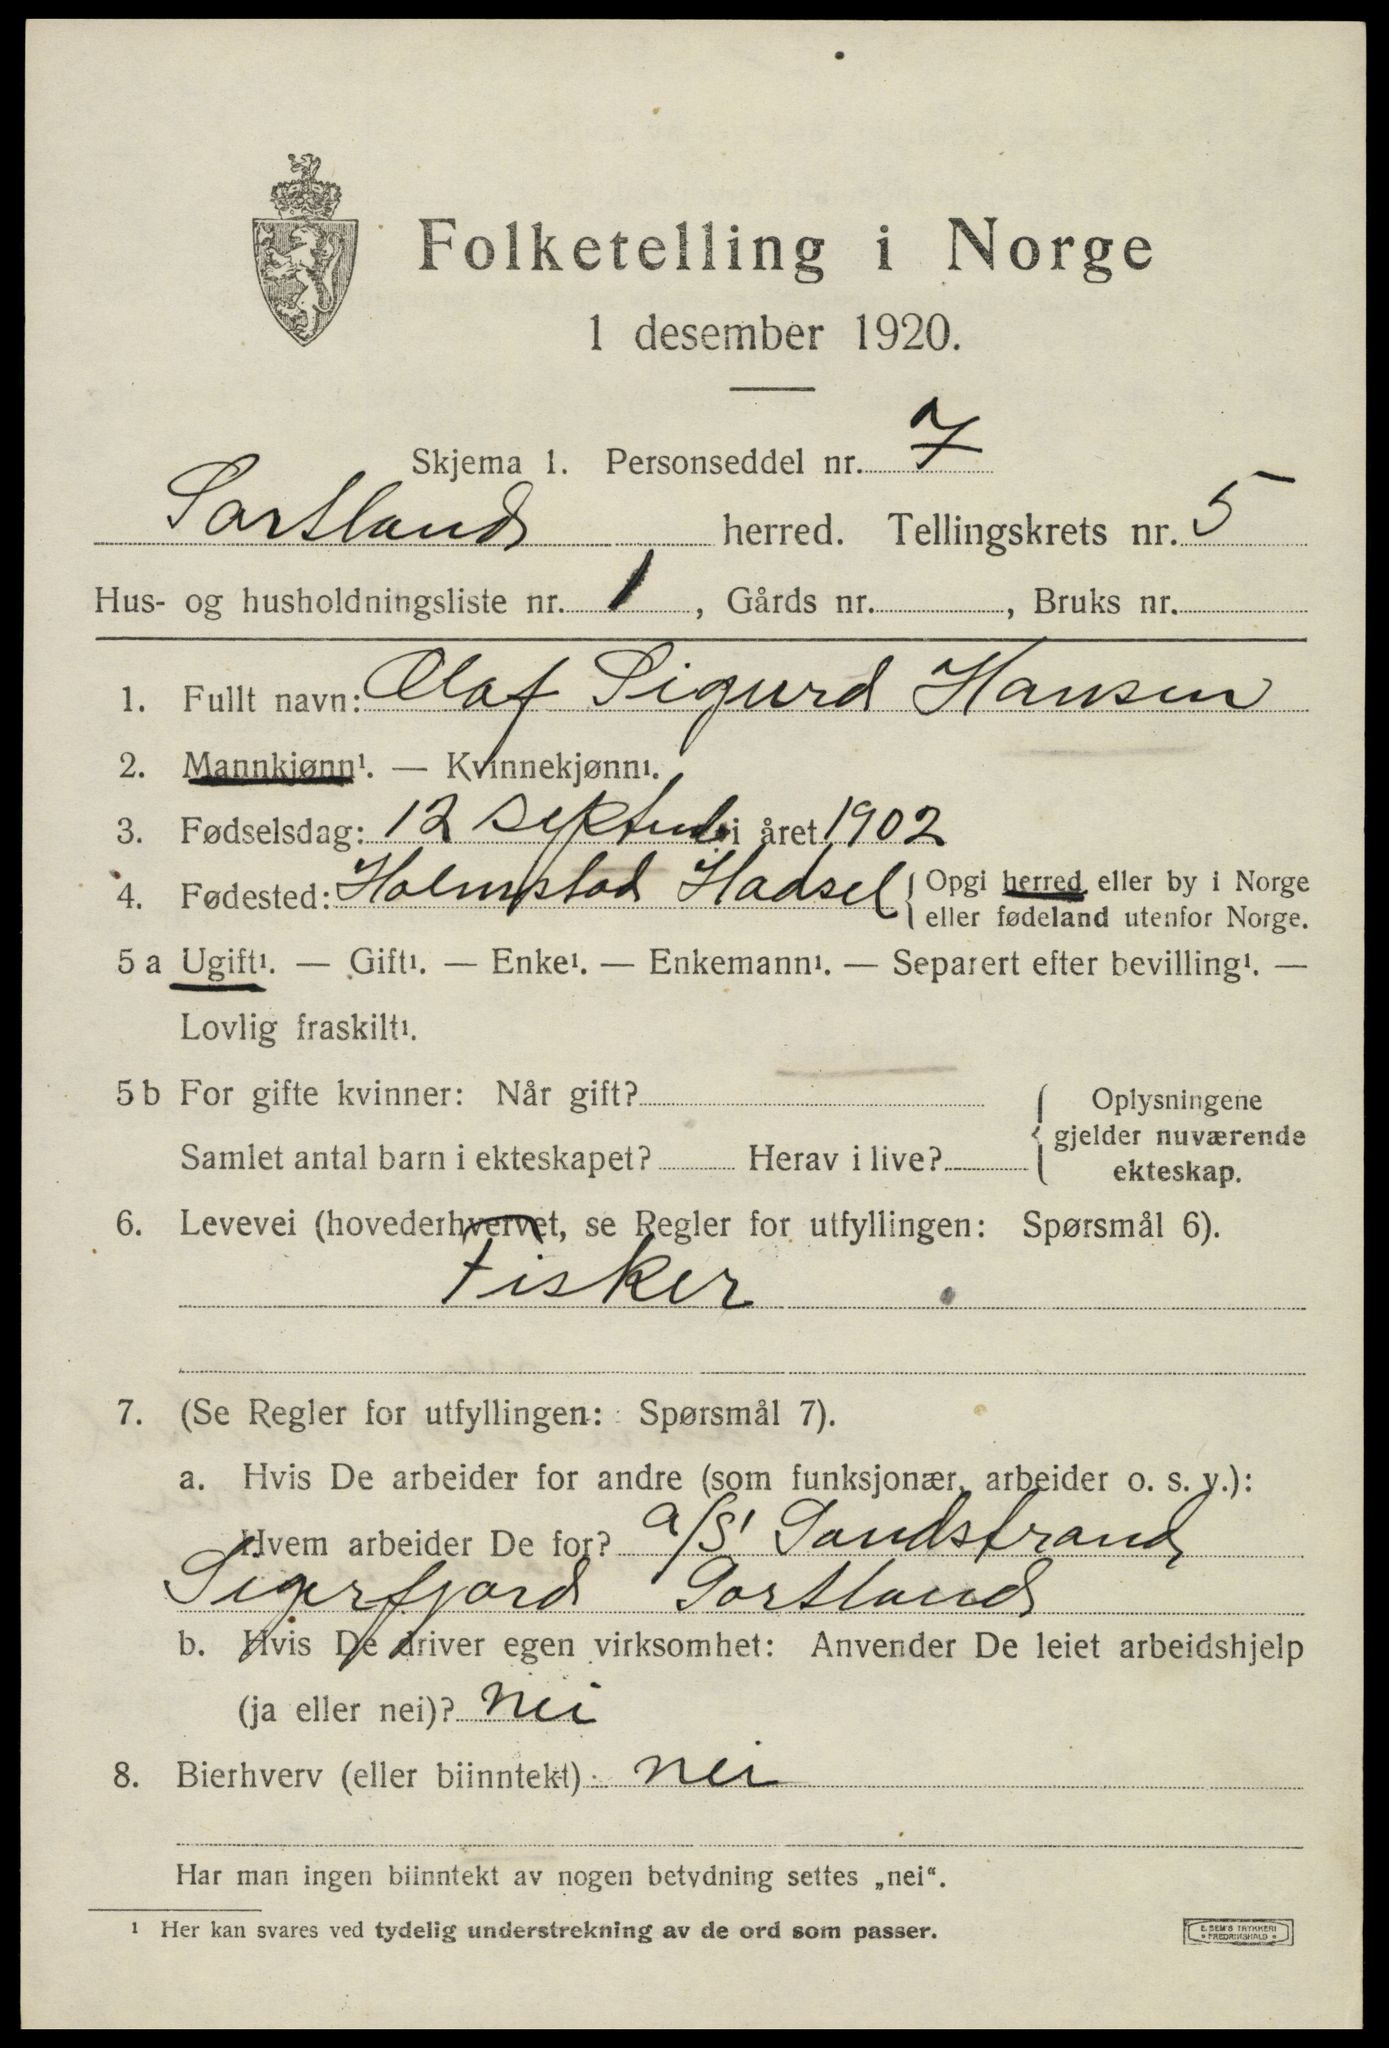 Folketelling i Norge
1 desember 1920.
Skjema 1. Personseddel nr. 7
Sortland herred. Tellingskrets nr. 5
Hus- og husholdningsliste nr. 1, Gårds nr. , Bruks nr.
1. Fullt navn: Olaf Sigurd Hansen
2. Mannkjønn¹. — Kvinnekjønn¹.
3. Fødselsdag: 12 septmb i året 1902
4. Fødested: Holmstad Hadsel { Opgi herred eller by i Norge
eller fødeland utenfor Norge.
5 a Ugift¹. — Gift¹. — Enke¹. — Enkemann¹. — Separert efter bevilling¹. —
Lovlig fraskilt¹.
5 b For gifte kvinner: Når gift?
Samlet antal barn i ekteskapet? Herav i live?
Oplysningene
gjelder nuværende
ekteskap.
6. Levevei (hovederhvervet, se Regler for utfyllingen: Spørsmål 6).
Fisker
7. (Se Regler for utfyllingen: Spørsmål 7).
a. Hvis De arbeider for andre (som funksjonær, arbeider o. s. v.):
Hvem arbeider De for? a/S Sandstrand
Sigerfjord Sortland
b. Hvis De driver egen virksomhet: Anvender De leiet arbeidshjelp
(ja eller nei)? nei
8. Bierhverv (eller biinntekt) nei
Har man ingen biinntekt av nogen betydning settes „nei“.
¹ Her kan svares ved tydelig understrekning av de ord som passer.
E. SEM'S TRYKKERI
FREDRIKSHALD